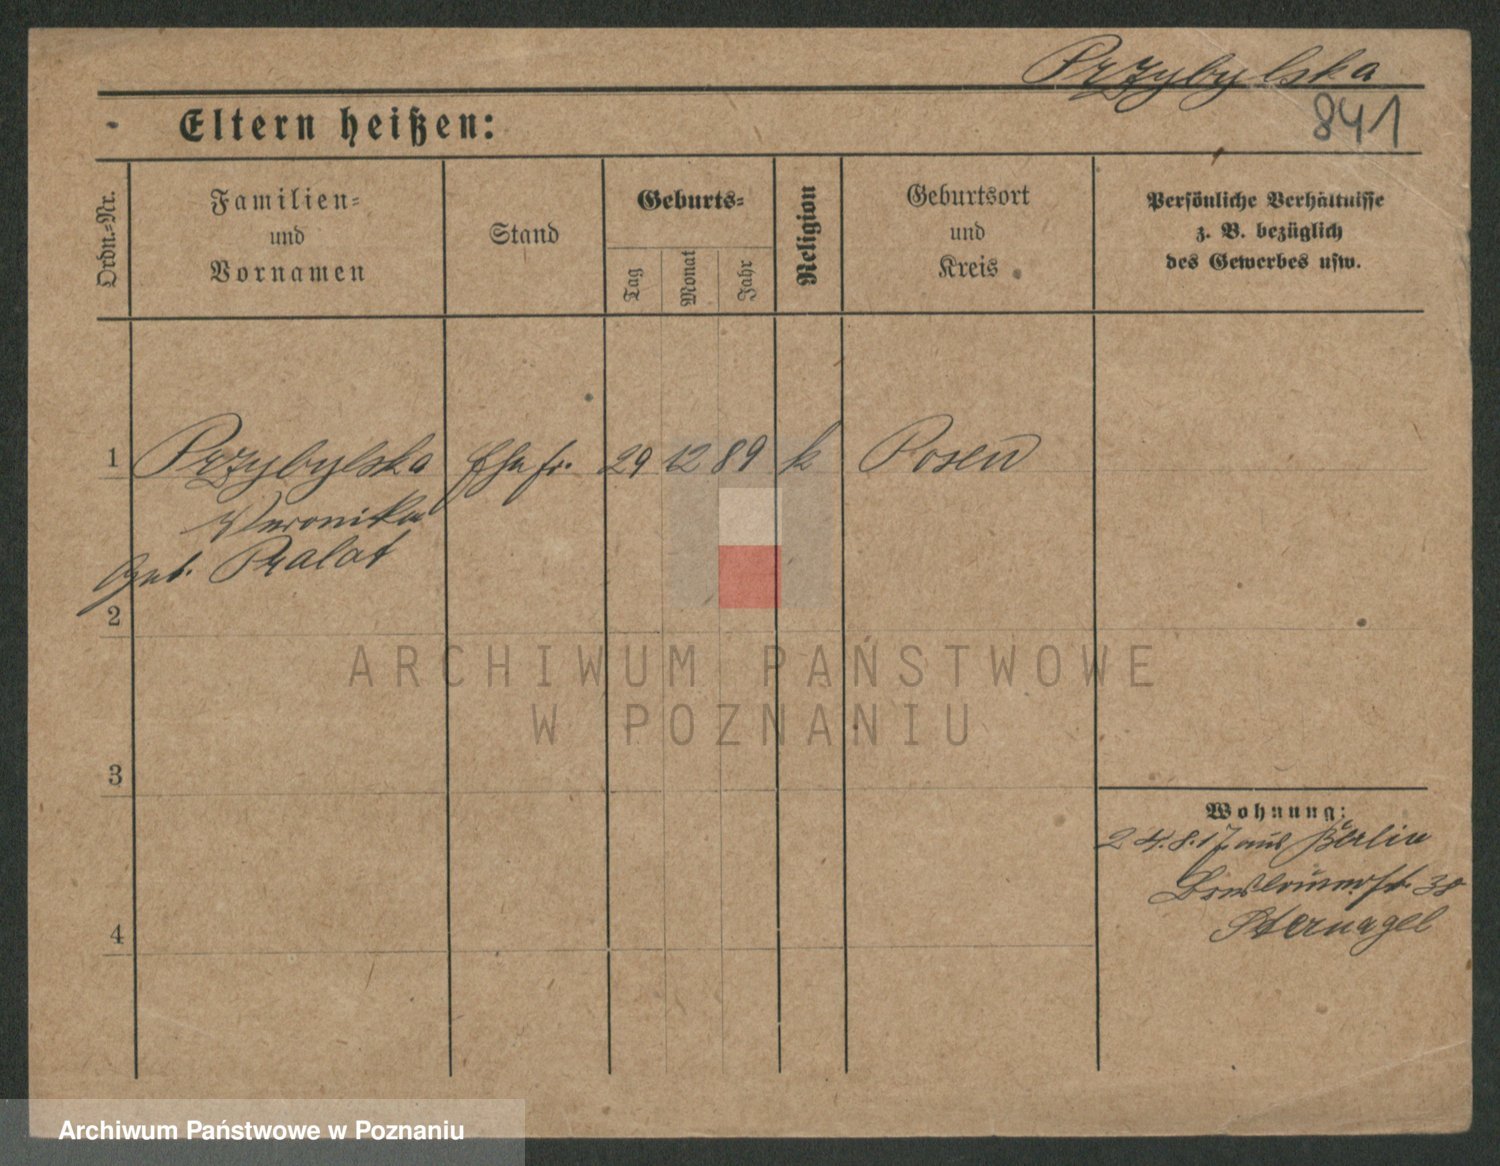 Przybylska
841
Eltern heißen:
Ordn.-Nr.
Familien-
und
Vornamen
Stand
Geburts-
Tag
Monat
Jahr
Religion
Geburtsort
und
Kreis
Persönliche Verhältnisse
z. B. bezüglich
des Gewerbes usw.
1 Przybylska Ehefr. 29 12 89 k Posen
Veronika
geb. Pralat
2
3
4
Wohnung:
24.8.17. aus Berlin
Breslauerstr. 38
Sternagel
ARCHIWUM PAŃSTWOWE
W POZNANIU
Archiwum Państwowe w Poznaniu